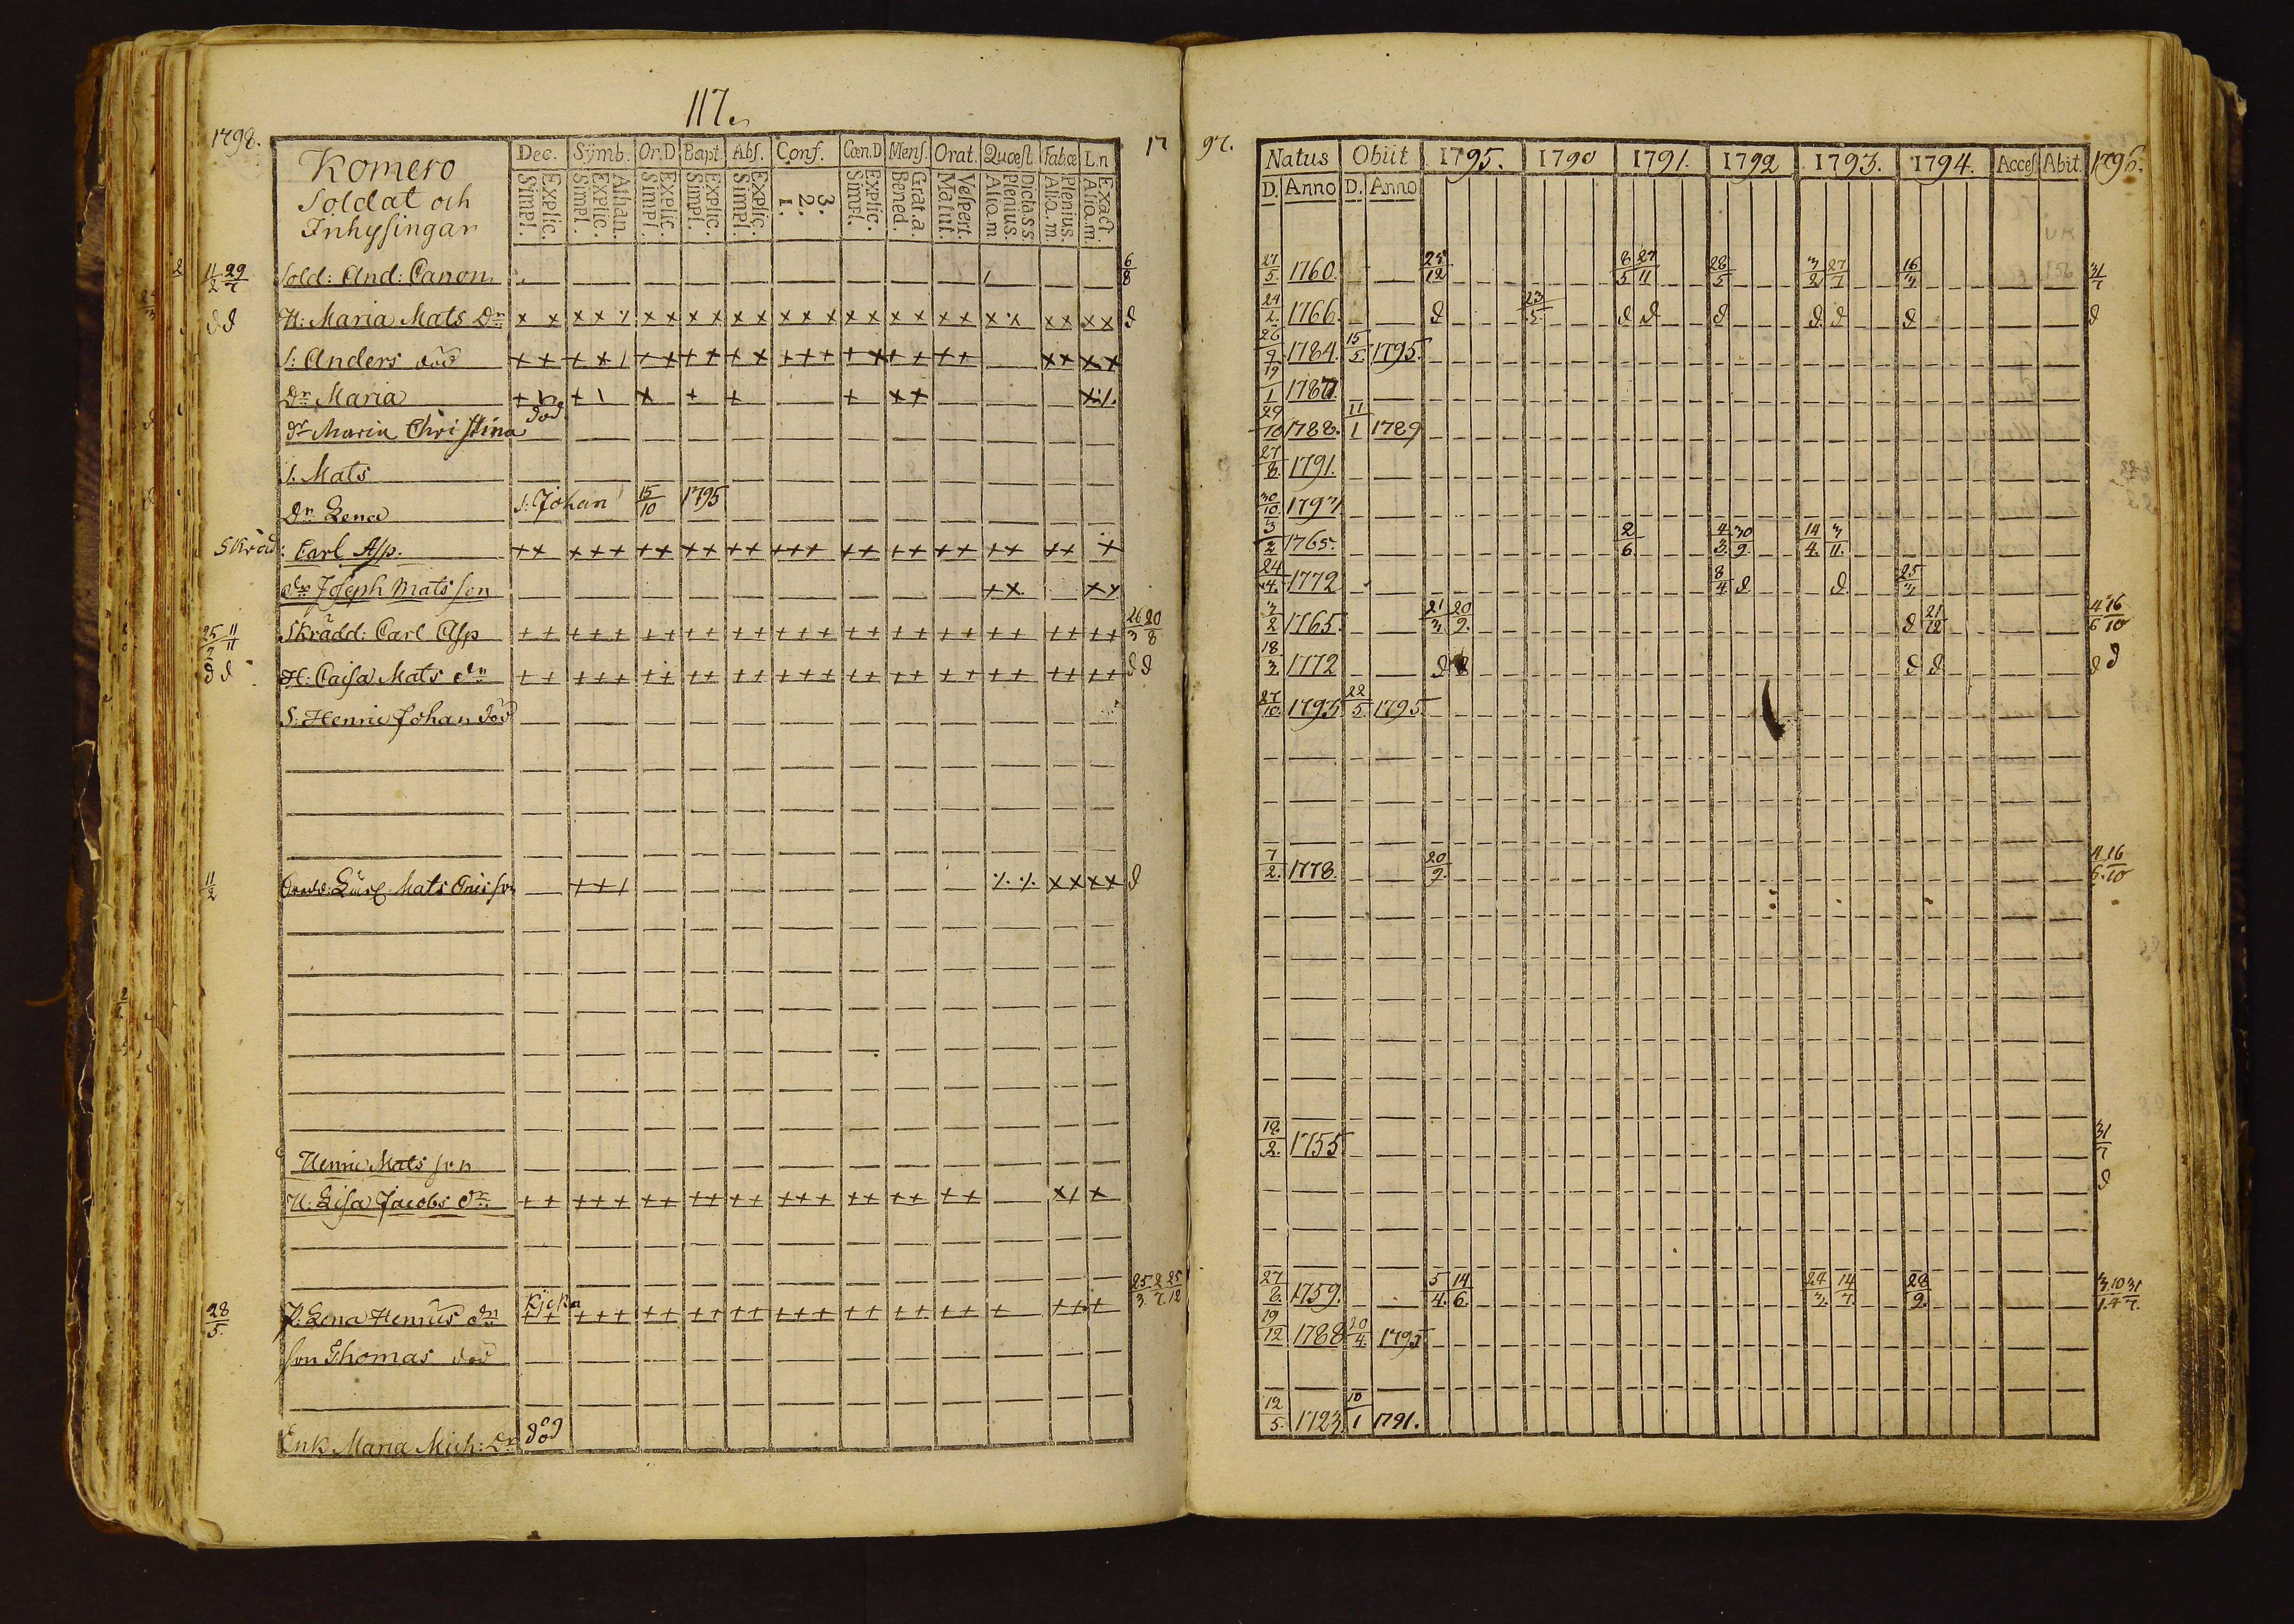 117.
1798.
Komero
Soldat och
Inhysingar
Dec. Symb. Or.D Bapt Abs. Conf. Cœn.D Mens. Orat. Quœst. Tabœ L.n
Explic. Simpl. Athan. Explic. Simpl. Explic. Simpl. Explic. Simpl. Explic. Simpl. 3. 2. 1. Explic. Simpl. Grat.a. Bened. Vespert. Matut. Dicta ss. Plenius. Aliq.m Plenius. Aliq.m. Exact. Aliq.m.
11/2 29/7 Sold: And: Canon 6/8
d d H: Maria Mats Dr x x x x x x x x x x x x x x x x x x x x x x x x x x x d
S: Anders död + + + x + x + + + x + + + + x + + + + x x x x
Dr Maria + + x + + + x x
dr Maria Christina död
S. Mats
Dr Lena S: Johan 15/10 1795
Skräd: Carl Asp. + + + + + + + + + + + + + + + + + + + + + + + + + +
dr Joseph Matsson x x x x
25/7 11/11 Skrädd: Carl Asp + + + + + + + + + + + + + + + + + + + + + + + + + + 26/3 20/8
d d H: Caisa Mats dr + + + + + + + + + + + + + + + + + + + + + + + + + + d d
S: Henric Johan död
11/2 Mats + + + x x x x d
Henric Matsson
H: Lisa Jacobs dr + + + + + + + + + + + + + + + + + + + + + x + x
28/5 P: Lena Henrics dr + + + + + + + + + + + + + + + + + + + + + + + + + 25/3 2/7 25/12
son Thomas död
Enk Maria Mich: Dr död
17 97.
Natus Obiit 1795. 1790 1791. 1792 1793. 1794. Acces Abit. 1796.
D. Anno D. Anno
27/5 1760 25/12 8/5 27/11 28/5 3/2 27/7 16/3 31/7
1766. d 23/5 d d d d d d d
26/9 1784. 15/5 1795.
19/1 1787.
29/10 1788. 11/1 1789
27/8 1791.
30/10 1793
3/2 1765. 2/6 4/3 30/9 14/4 3/11
24/4 1772 8/4 d d 25/3
3/2 1765. 21/3 20/9 d 21/12 4/6 16/10
18/3 1772 d d d d d
27/10 1793 22/5 1795.
7/2 1778. 20/9 4/6 16/10
12/2 1755. 31/7
d
27/8 1759. 5/4 14/6 24/3 14/7 28/9
19/12 1788 20/4 1795
12/5 1723 10/1 1791.